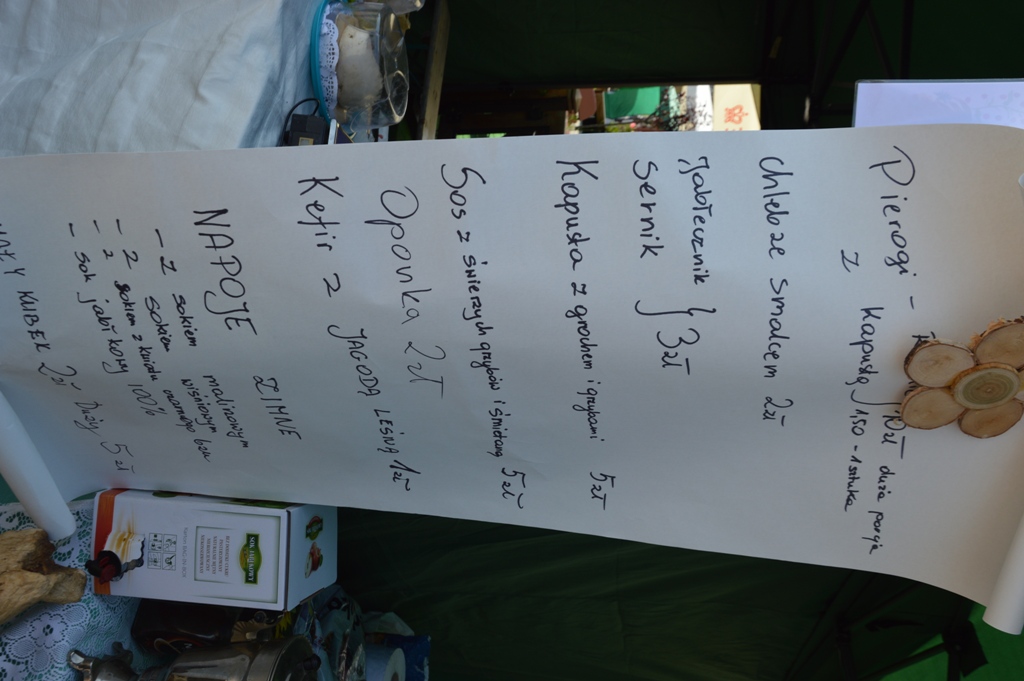 Pierogi - 10zł duża porcja
z kapustą 1,50 - 1 sztuka
chleb ze smalcem 2zł
Jabłecznik } 3zł
sernik
Kapusta z grochem i grzybami 5zł
Sos z świeżych grzybów i śmietaną 5zł
Oponka 2zł
Kefir z JAGODĄ LEŚNĄ 1zł
NAPOJE ZIMNE
- z sokiem malinowym
- z sokiem wiśniowym
- z sokiem z kwiatu czarnego bzu
- sok jabłkowy 100%
MAŁY KUBEK 2zł Duży 5zł
SOK JABŁKOWY